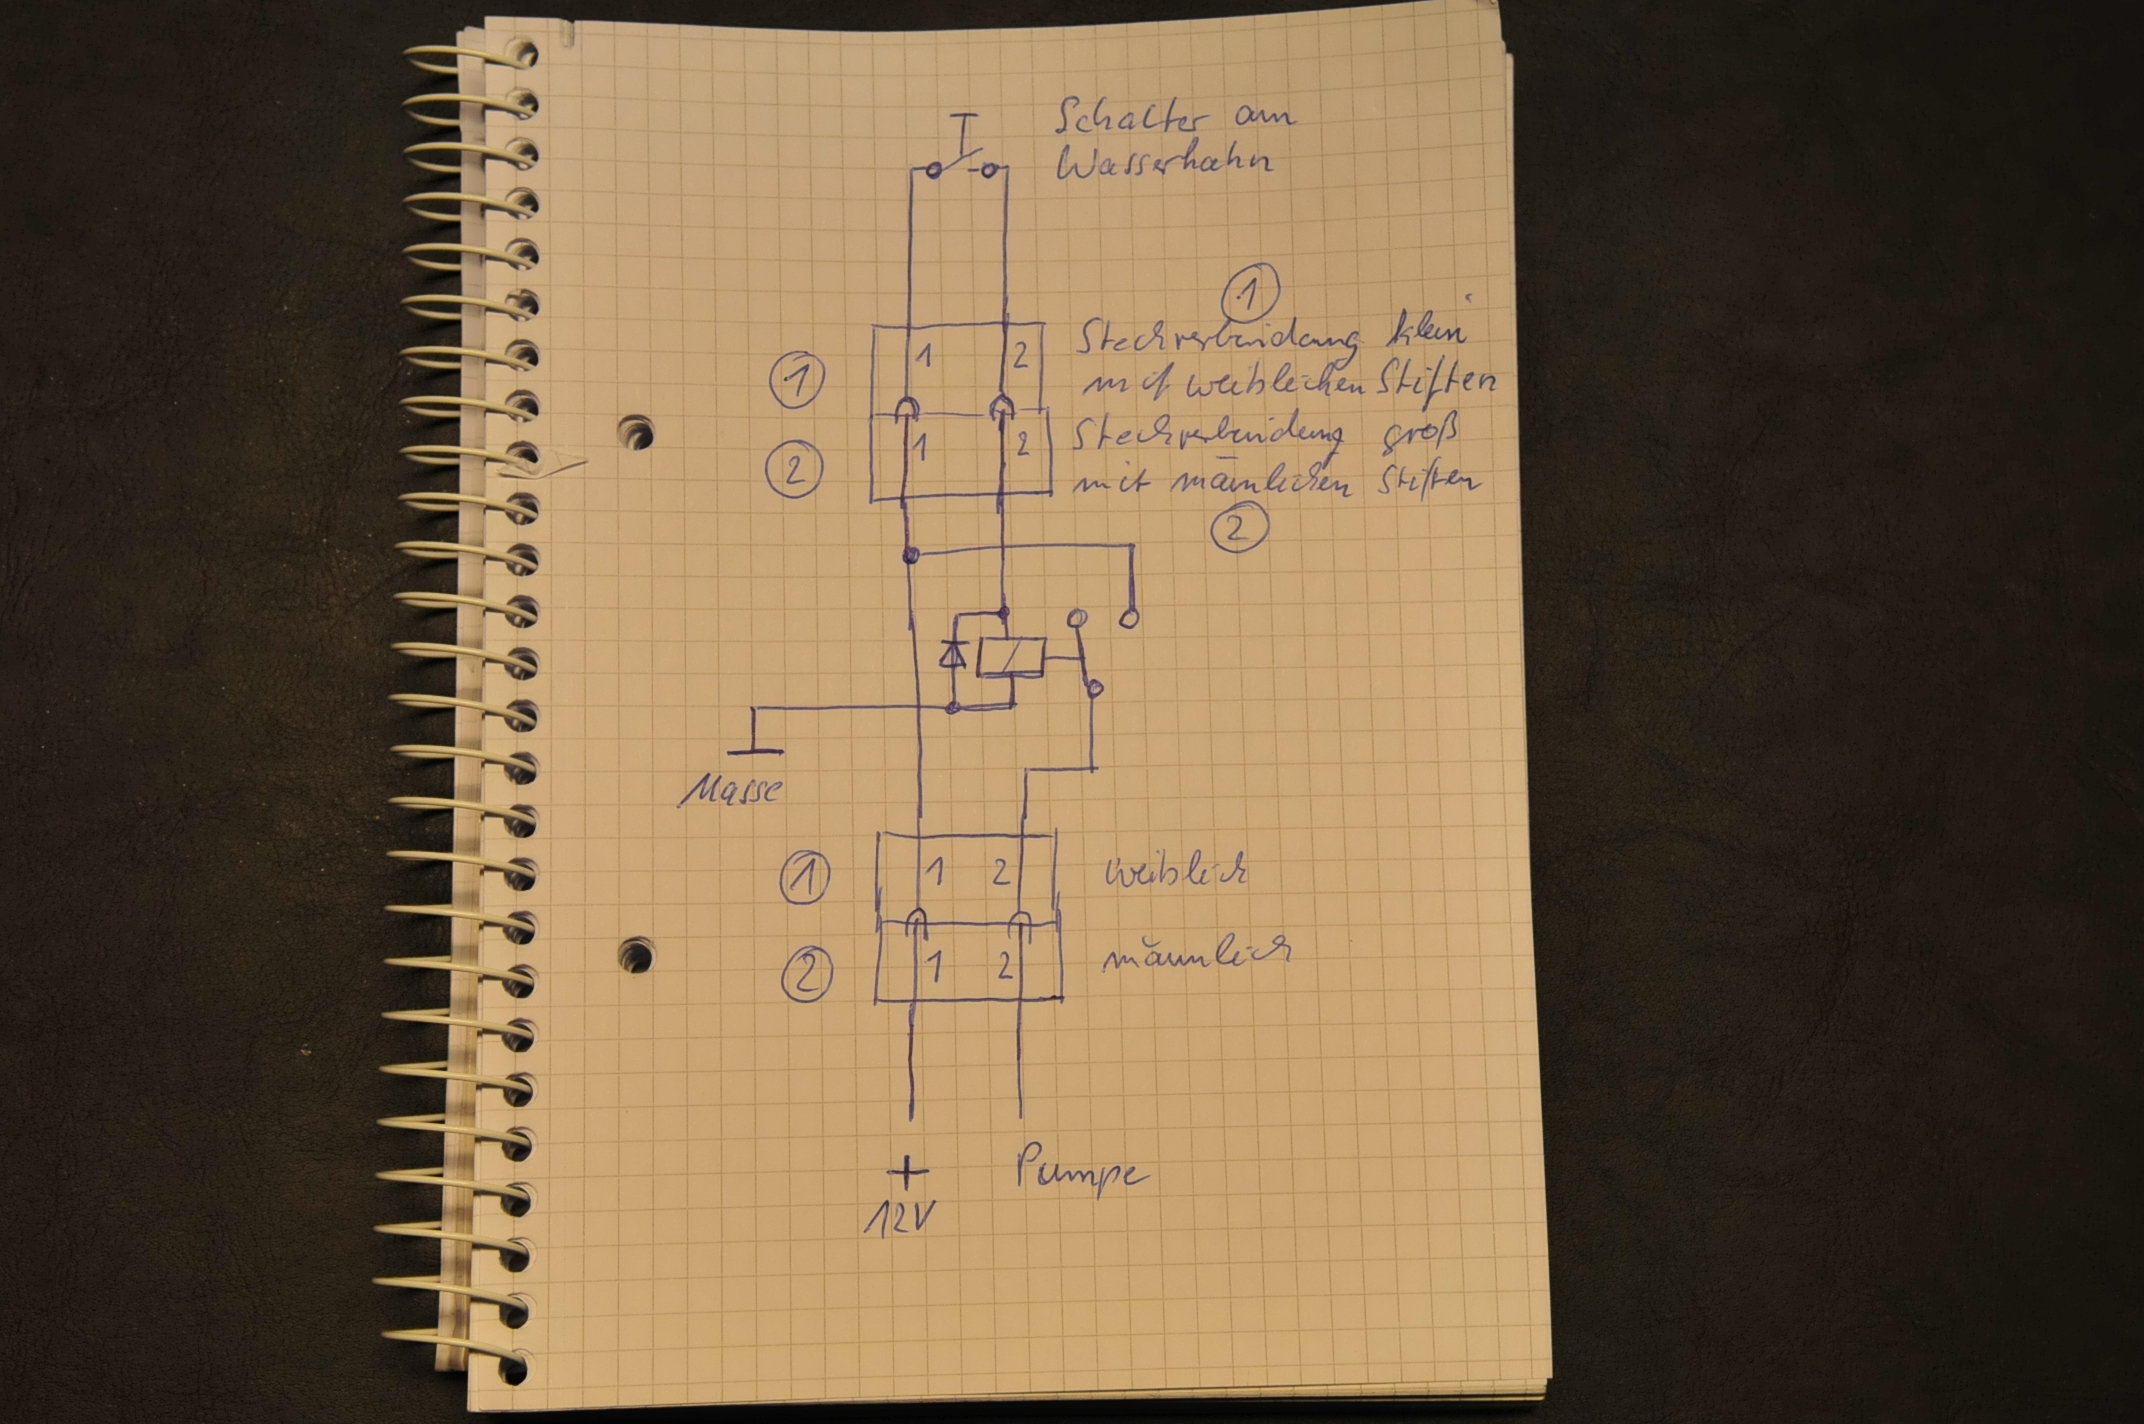 Schalter am
Wasserhahn
1
Steckverbindung klein
1 2
1
mit weiblichen Stiften
Steckverbindung groß
1 2
2
mit männlichen Stiften
2
Masse
1
1 2
weiblich
2
1 2
männlich
+ Pumpe
12V